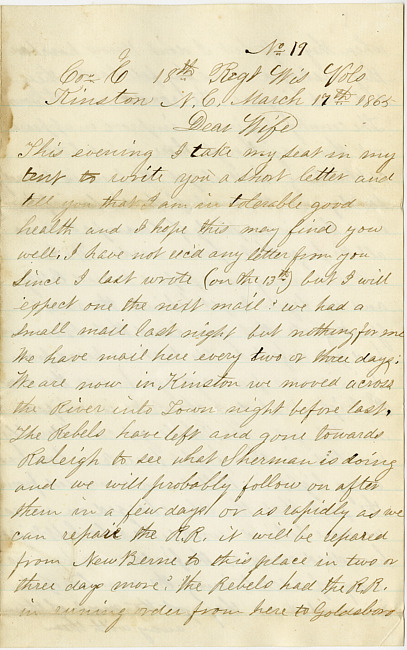 No 19
Co E 18th Regt Wis Vols
Kinston N.C. March 17th 1865
Dear Wife
This evening I take my seat in my
tent to write you a short letter and
tell you that I am in tolerable good
health and I hope this may find you
well, I have not rec'd any letter from you
since I last wrote (on the 13th) but I will
expect one the next mail: we had a
small mail last night but nothing for me
We have mail here every two or three days:
We are now in Kinston we moved across
the River into Town night before last,
The Rebels have left and gone towards
Raleigh to see what Sherman is doing
and we will probably follow on after
them in a few days or as rapidly as we
can repair the R.R. it will be repared
from New Berne to this place in two or
three days more: the Rebels had the R.R.
in runing order from here to Goldsboro